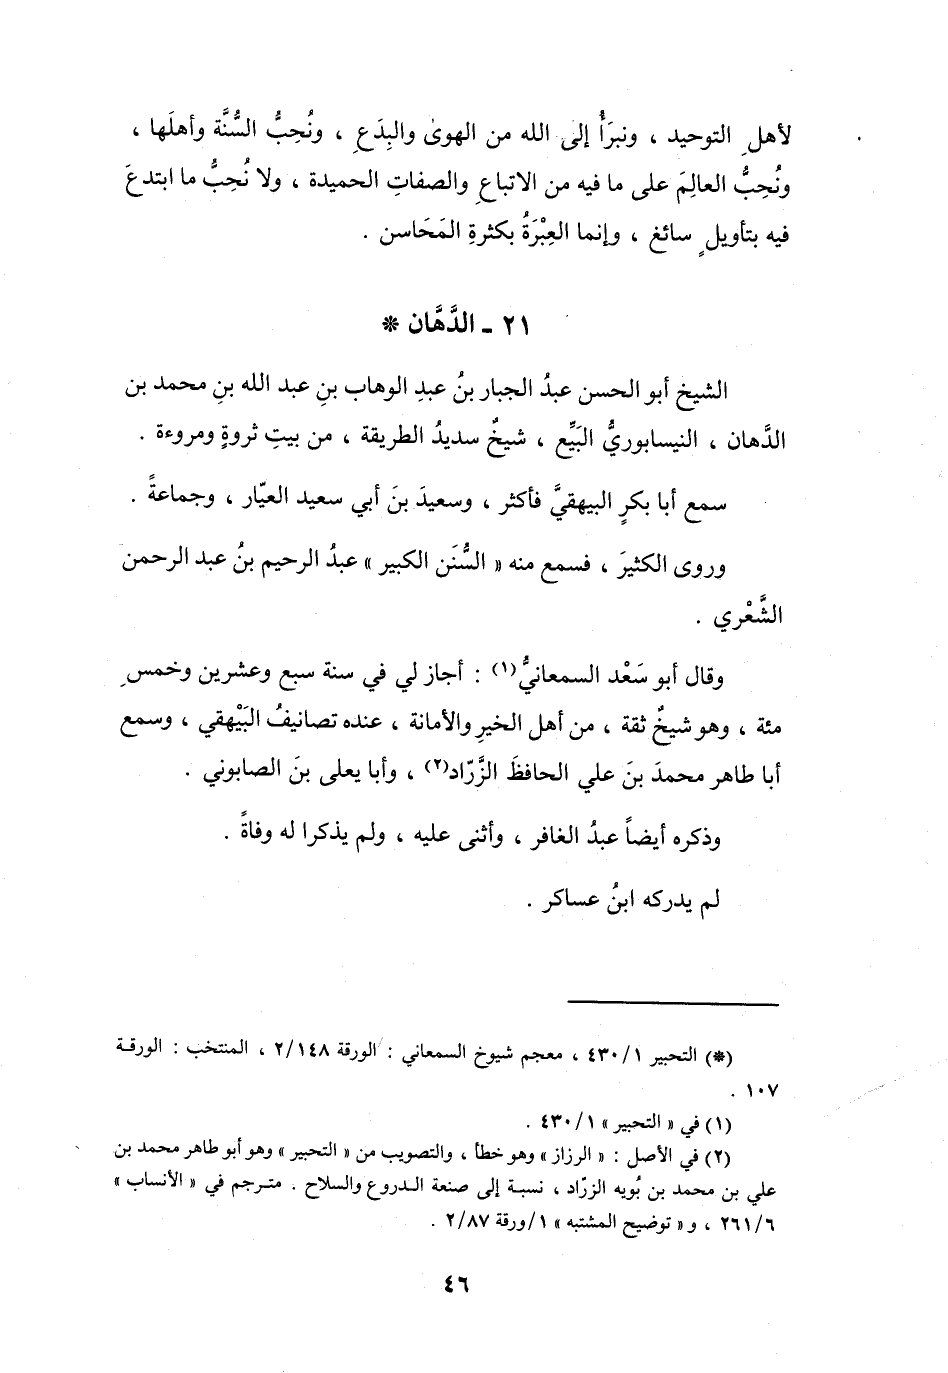 لأهلِ التوحيد ، ونبرَأُ إلى الله من الهوىٰ والبِدَعِ ، ونُحِبُّ السُّنَّة وأهلَها ،
ونُحِبُّ العالِمَ على ما فيه من الاتباعِ والصفاتِ الحميدة ، ولا نُحِبُّ ما ابتدعَ
فيه بتأويلٍ سائغ ، وإنما العِبْرَةُ بكثرةِ المَحَاسن .
٢١ ـ الدَّهَّان *
الشيخ أبو الحسن عبدُ الجبار بنُ عبدِ الوهاب بنِ عبد الله بنِ محمد بن
الدَّهان ، النيسابوريُّ البَيِّع ، شيخٌ سديدُ الطريقة ، من بيتِ ثروةٍ ومروءة .
سمع أبا بكرٍ البيهقيَّ فأكثر ، وسعيدَ بنَ أبي سعيد العيّار ، وجماعةً .
وروى الكثيرَ ، فسمع منه « السُّنَن الكبير » عبدُ الرحيم بنُ عبد الرحمن
الشَّعْري .
وقال أبو سَعْد السمعانيُّ(١) : أجاز لي في سنة سبع وعشرين وخمسِ
مئة ، وهو شيخٌ ثقة ، من أهل الخيرِ والأمانة ، عنده تصانيفُ البَيْهقي ، وسمع
أبا طاهر محمدَ بنَ علي الحافظَ الزَّرّاد(٢) ، وأبا يعلى بنَ الصابوني .
وذكره أيضاً عبدُ الغافر ، وأثنى عليه ، ولم يذكرا له وفاةً .
لم يدركه ابنُ عساكر .
(*) التحبير ١/٤٣٠ ، معجم شيوخ السمعاني : الورقة ٢/١٤٨ ، المنتخب : الورقة
١٠٧ .
(١) في « التحبير » ١/٤٣٠ .
(٢) في الأصل : « الرزاز » وهو خطأ ، والتصويب من « التحبير » وهو أبو طاهر محمد بن
علي بن محمد بن بُويه الزرّاد ، نسبة إلى صنعة الدروع والسلاح . مترجم في « الأنساب »
٦/٢٦١ ، و « توضيح المشتبه » ١/ورقة ٢/٨٧ .
٤٦